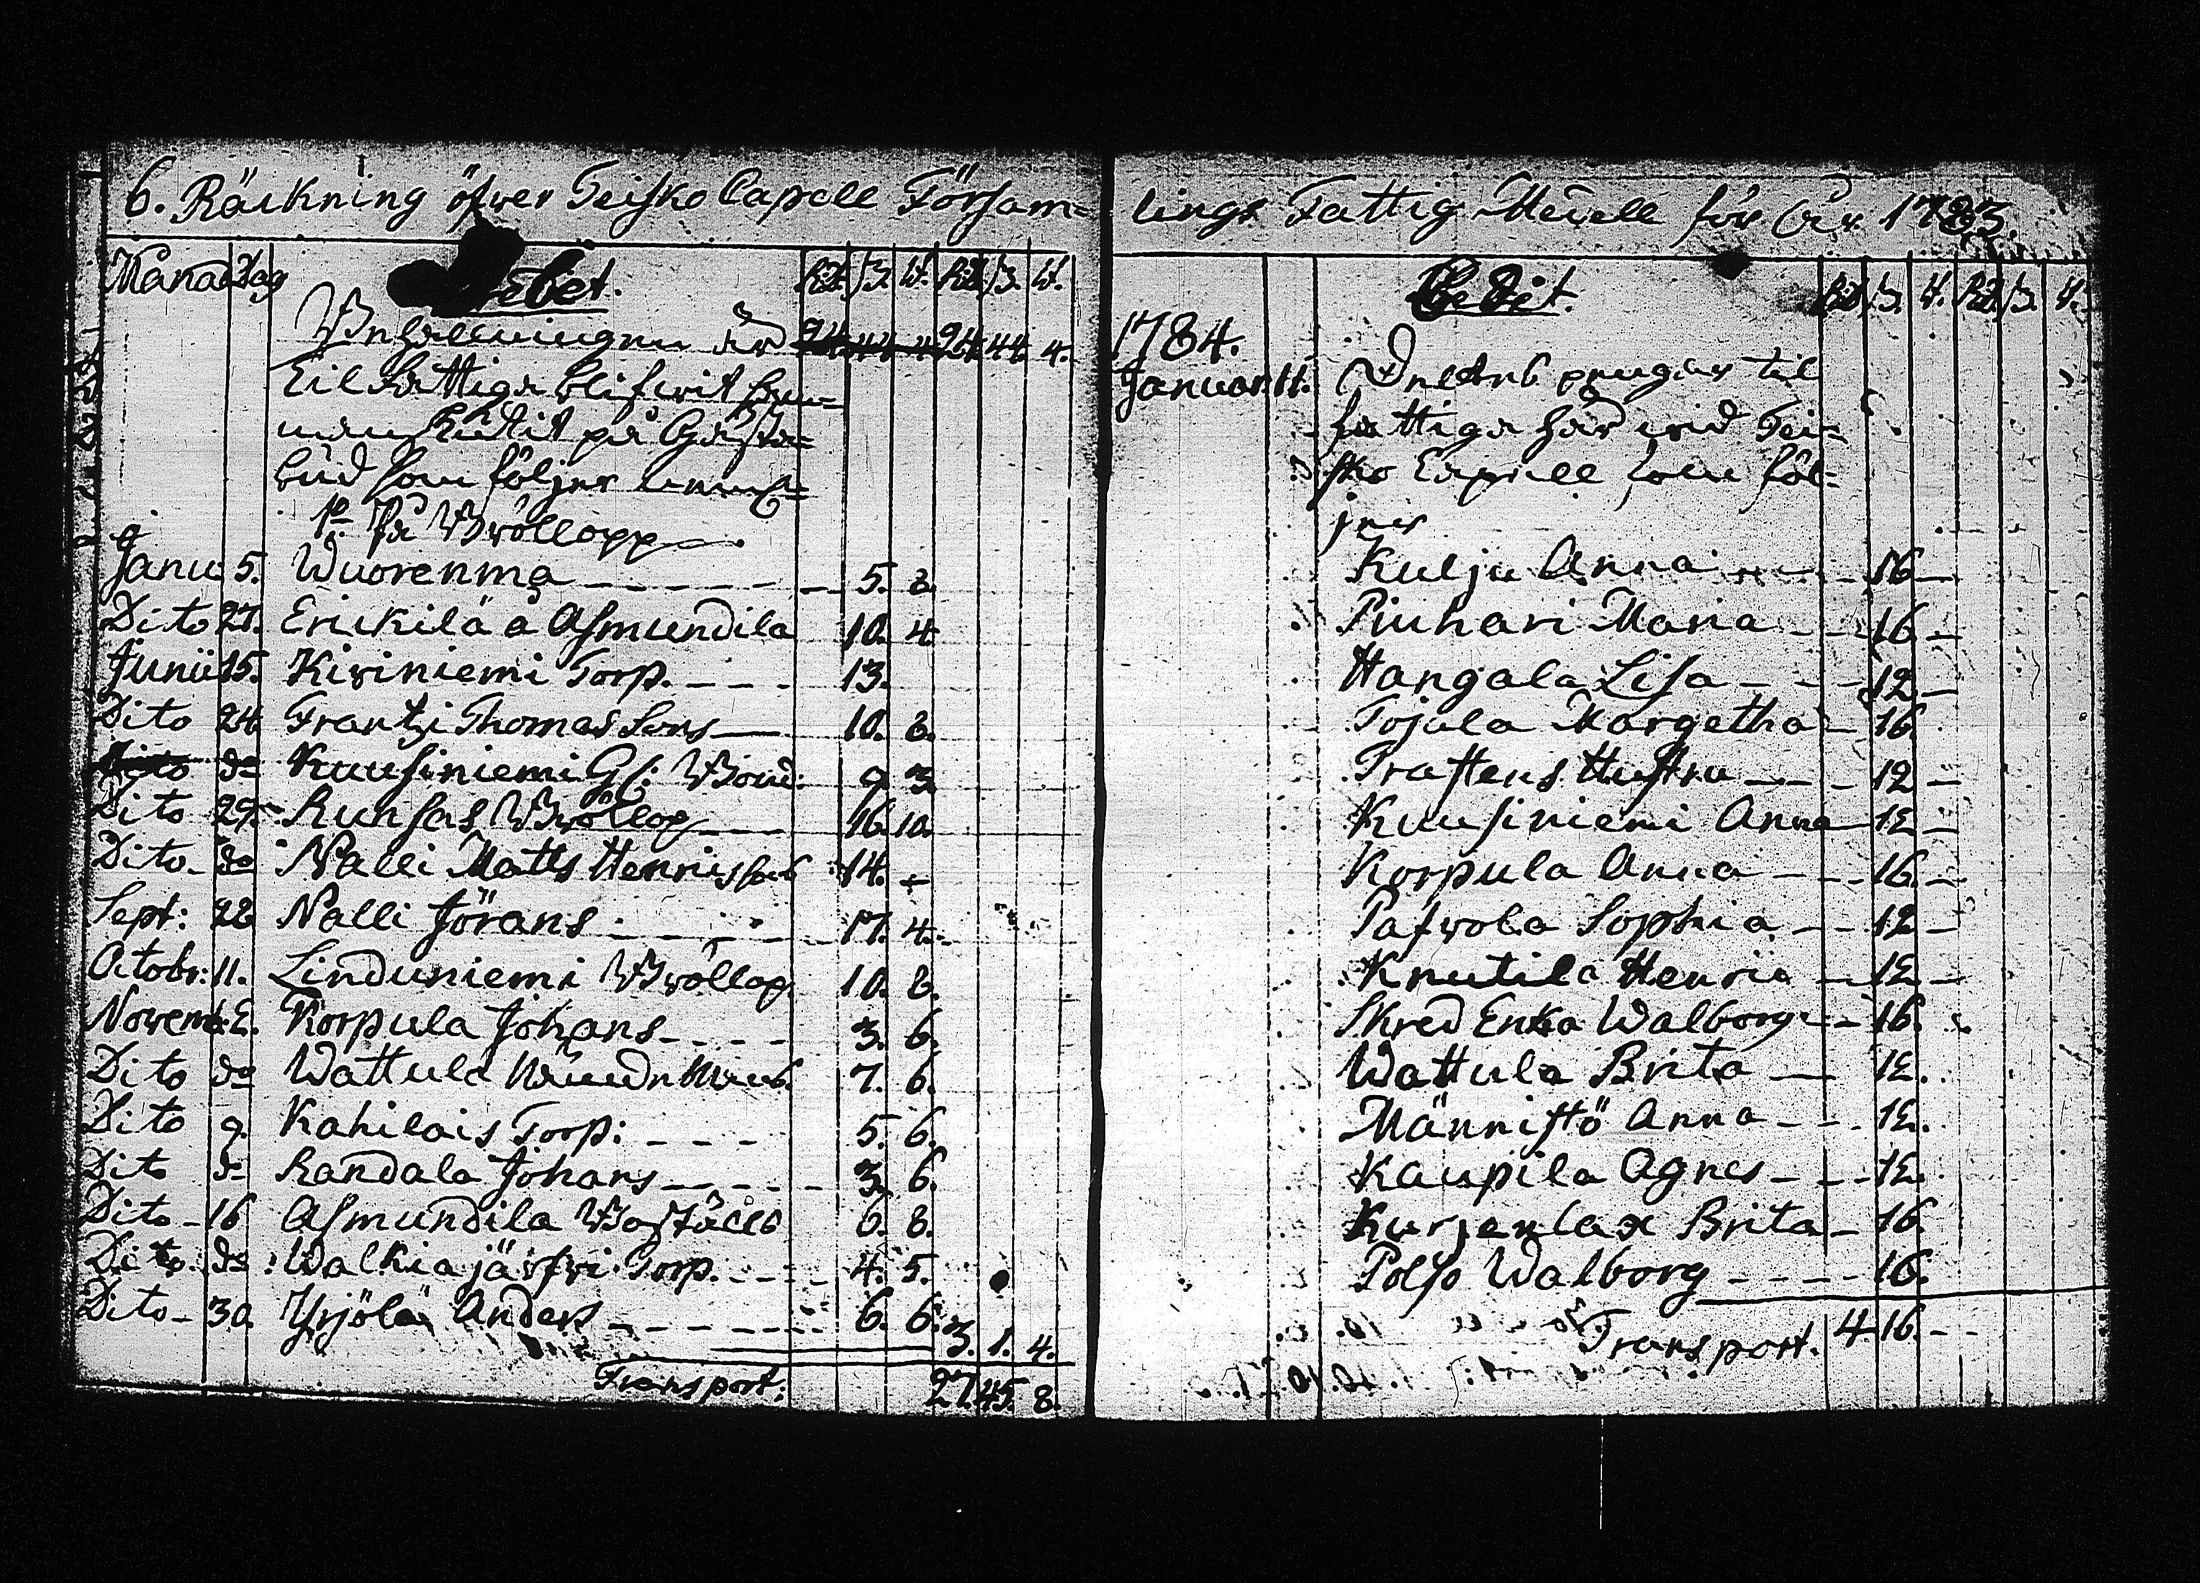 6. Räckning öfver Teisko Capell Försam=
Månad Dag Debet. Rd. ß. W. Rd. ß. W.
Behållningen är 24. 44. 4. 24. 44. 4.
Til Fattiga blifwit
på Gästa=
bud som följer
1o På Bröllopp
Janu. 5. Wuorenma 5. 8.
Dito 27. Erickilä a Asmundila 10. 4
Junii 15. Kiviniemi Torp. 13.
Dito 24 Frantzi Thomas Sons 10. 8.
Dito do Kuusiniemi 9. 3
Dito 29. Runsas Bröllop 16. 10.
Dito do Nalli Matts Henrissons 14. -
Sept: 28 Nalli Jörans 17. 4.
Octobr: 11. Linduniemi Bröllop. 10. 8.
Novemb. 2. Korpula Johans 3. 6.
Dito do Wattula 7. 6.
Dito 9. Kahilais Torp: 5. 6.
Dito do Randala Johans 3. 6.
Dito 16 Asmundila 6. 8.
Dito do Walkiajärfvi Torp. 4. 5.
Dito 30. Yrjölä Anders 6. 6. 3. 1. 4.
Transport: 27. 45. 8.
lings Fattig Medell för År 1783.
Credit. Rd. ß. W. Rd. ß. W.
1784.
Januar. 11. Deltes pengar til
fattiga här wid Tei=
sko Capell som föl=
jer
Kulju Anna 16 -
Piuhari Maria 16 -
Hangala Lisa 12 -
Tojula Margetha 16
Trastens Hustru 12 -
Kuusiniemi Anna 12 -
Korpula Anna 16. -
Pafvola Sophia 12 -
Knutila Henric 12 -
Skred Enka Walborg 16.
Wattula Brita 12.
Männistö Anna 12.
Kaupila Agnes 12.
Kurjenlax Brita 16.
Polso Walborg 16.
Transport. 4 16. -